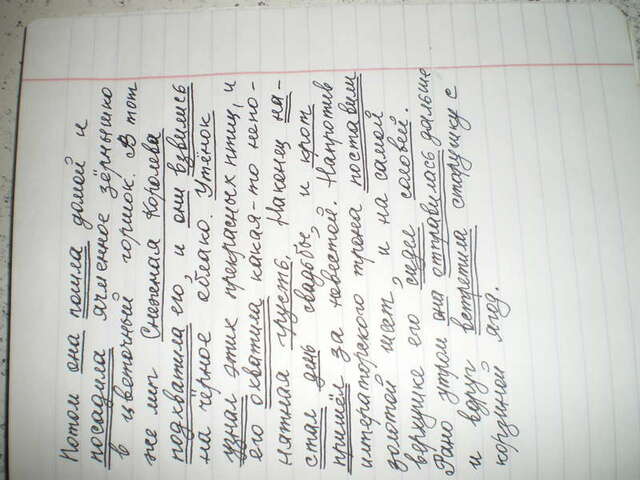 Потом она пошла домой и
посадила ячменное зёрнышко
в цветочный горшок. В тот
же миг Снежная Королева
подхватила его и они взвились
на чёрное облако. Утёнок
узнал этих прекрасных птиц, и
его охватила какая-то непо-
нятная грусть. Наконец на-
стал день свадьбы, и крот
пришёл за невестой. Напротив
императорского трона поставили
золотой шест, и на самой
верхушке его сидел соловей.
Рано утром она отправилась дальше
и вдруг встретила старушку с
корзиной ягод.